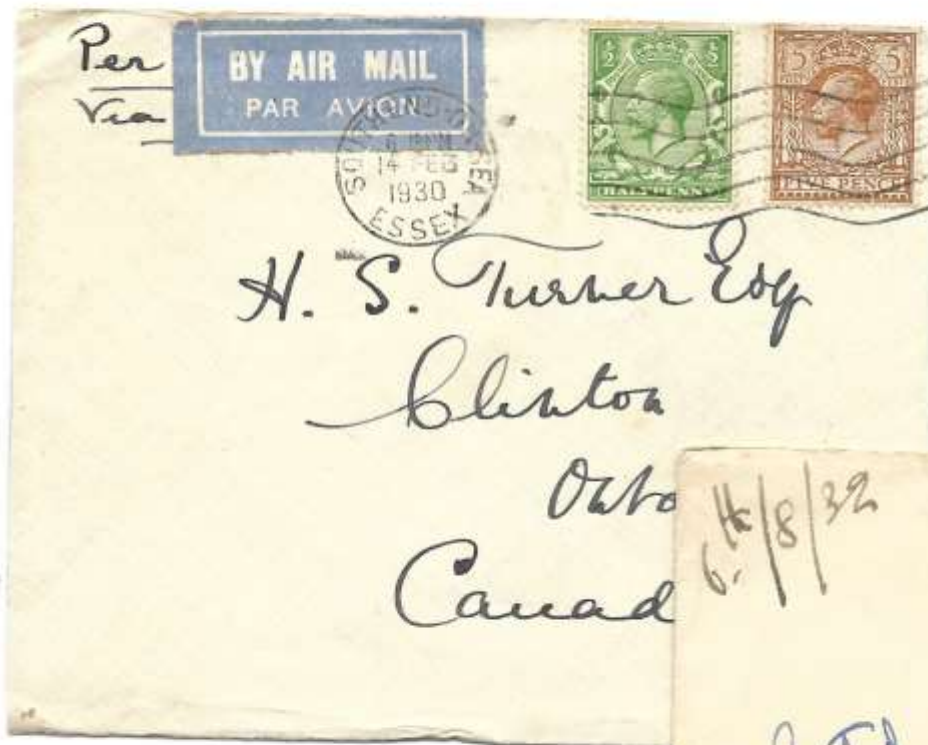 Per
Via
BY AIR MAIL
PAR AVION
SOUTHEND-ON-SEA
14 FEB
1930
ESSEX
½ ½
HALFPENNY
5 5
FIVE PENCE
H. S. Turner Esq
Clinton
Onto
Canad
6.th/8/32